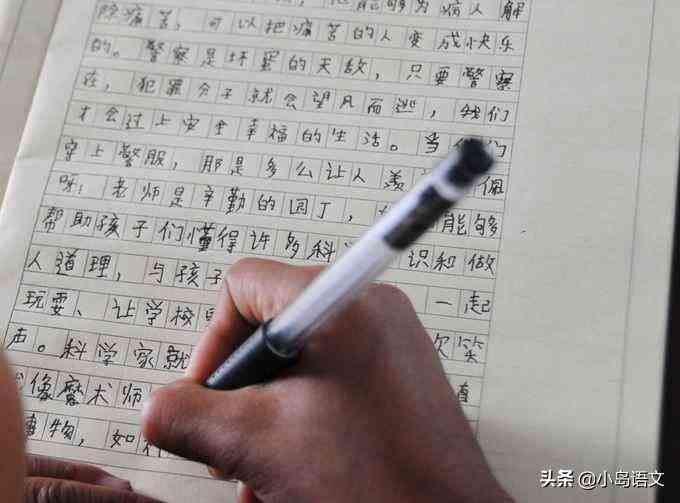 能够为病人解
除痛苦，可以把痛苦的人变成快乐
的。警察是坏蛋的天敌，只要警察
在，犯罪分子就会望风而逃，我们
才会过上安全幸福的生活。当他们
穿上警服，那是多么让人羡 佩
呀；老师是辛勤的园丁， 能够
帮助孩子们懂得许多科 识和做
人道理，与孩子 一起
玩耍、让学校 欢笑
声。科学家就
像魔术师
事物，如
头条 @小岛语文